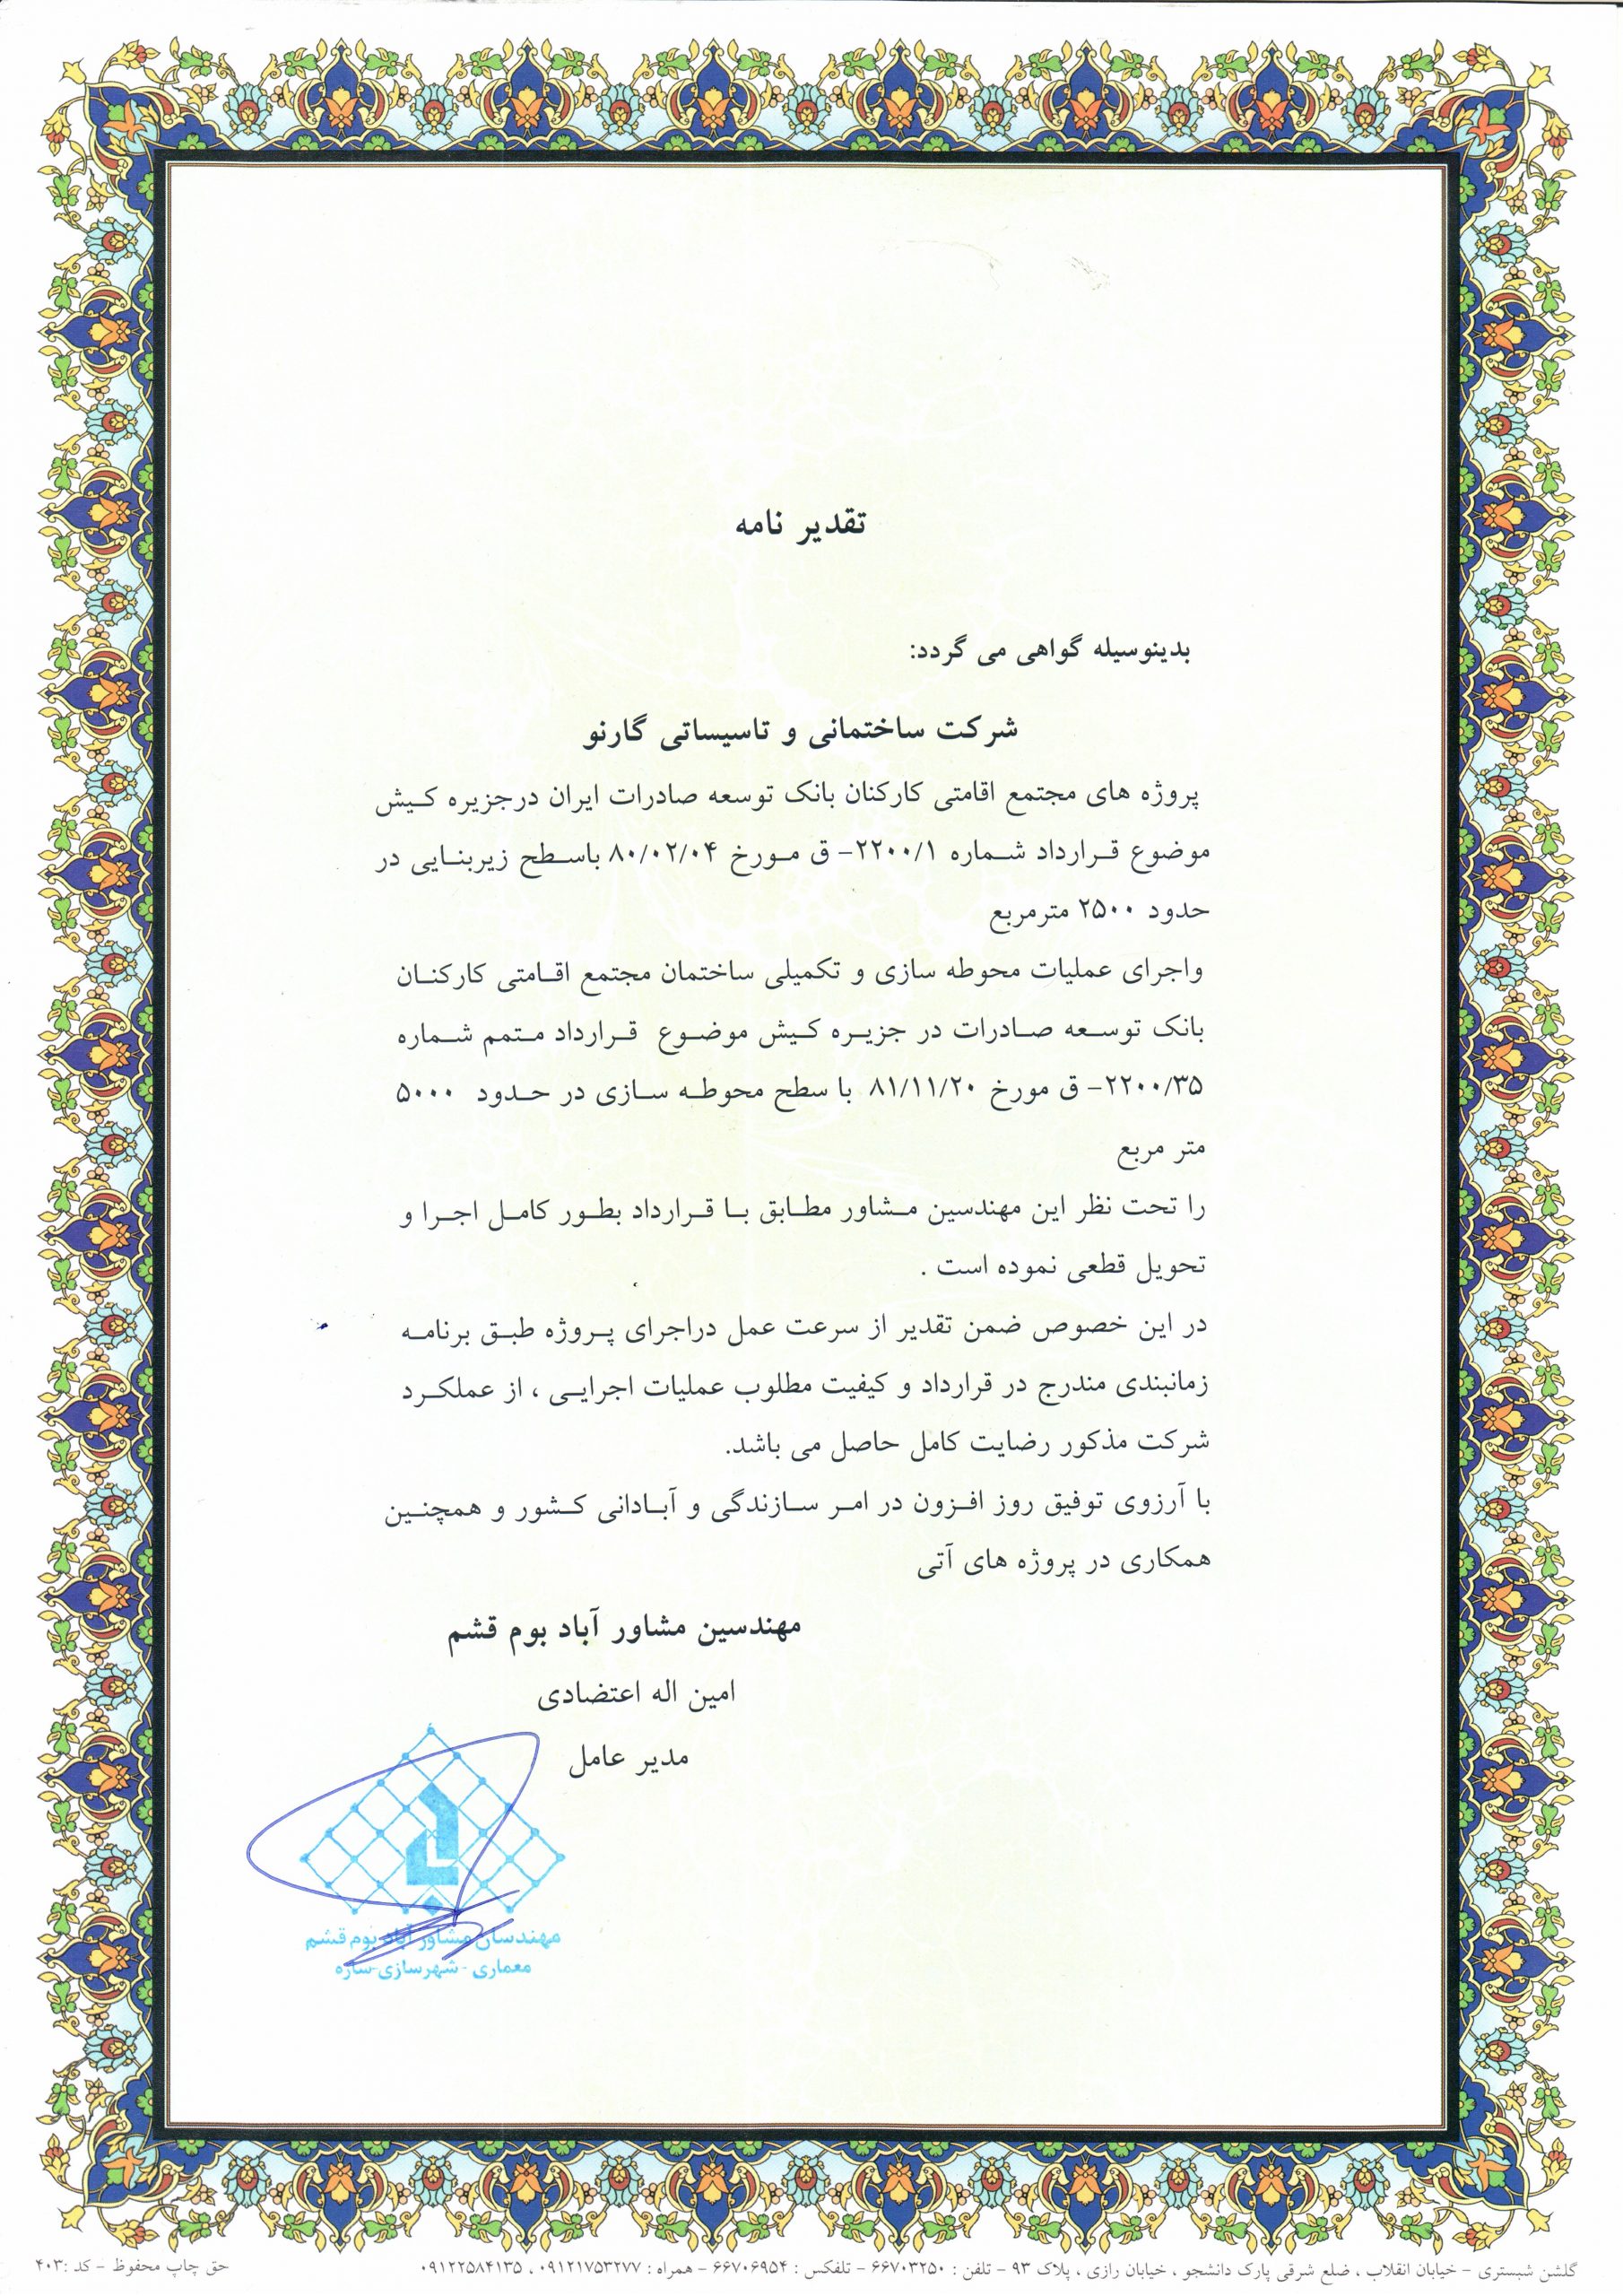 تقدیر نامه
بدینوسیله گواهی می گردد:
شرکت ساختمانی و تاسیساتی گارنو
پروژه های مجتمع اقامتی کارکنان بانک توسعه صادرات ایران درجزیره کیش
موضوع قرارداد شماره ۲۲۰۰/۱- ق مورخ ۸۰/۰۲/۰۴ باسطح زیربنایی در
حدود ۲۵۰۰ مترمربع
واجرای عملیات محوطه سازی و تکمیلی ساختمان مجتمع اقامتی کارکنان
بانک توسعه صادرات در جزیره کیش موضوع قرارداد متمم شماره
۲۲۰۰/۳۵- ق مورخ ۸۱/۱۱/۲۰ با سطح محوطه سازی در حدود ۵۰۰۰
متر مربع
را تحت نظر این مهندسین مشاور مطابق با قرارداد بطور کامل اجرا و
تحویل قطعی نموده است .
در این خصوص ضمن تقدیر از سرعت عمل دراجرای پروژه طبق برنامه
زمانبندی مندرج در قرارداد و کیفیت مطلوب عملیات اجرایی ، از عملکرد
شرکت مذکور رضایت کامل حاصل می باشد.
با آرزوی توفیق روز افزون در امر سازندگی و آبادانی کشور و همچنین
همکاری در پروژه های آتی
مهندسین مشاور آباد بوم قشم
امین اله اعتضادی
مدیر عامل
مهندسان مشاور آباد بوم قشم
معماری - شهرسازی-سازه
گلشن شبستری - خیابان انقلاب ، ضلع شرقی پارک دانشجو ، خیابان رازی ، پلاک ۹۳ - تلفن : ۶۶۷۰۳۲۵۰ - تلفکس : ۶۶۷۰۶۹۵۴ - همراه : ۰۹۱۲۱۷۵۳۲۷۷ ، ۰۹۱۲۲۵۸۴۱۳۵
حق چاپ محفوظ - کد :۴۰۳